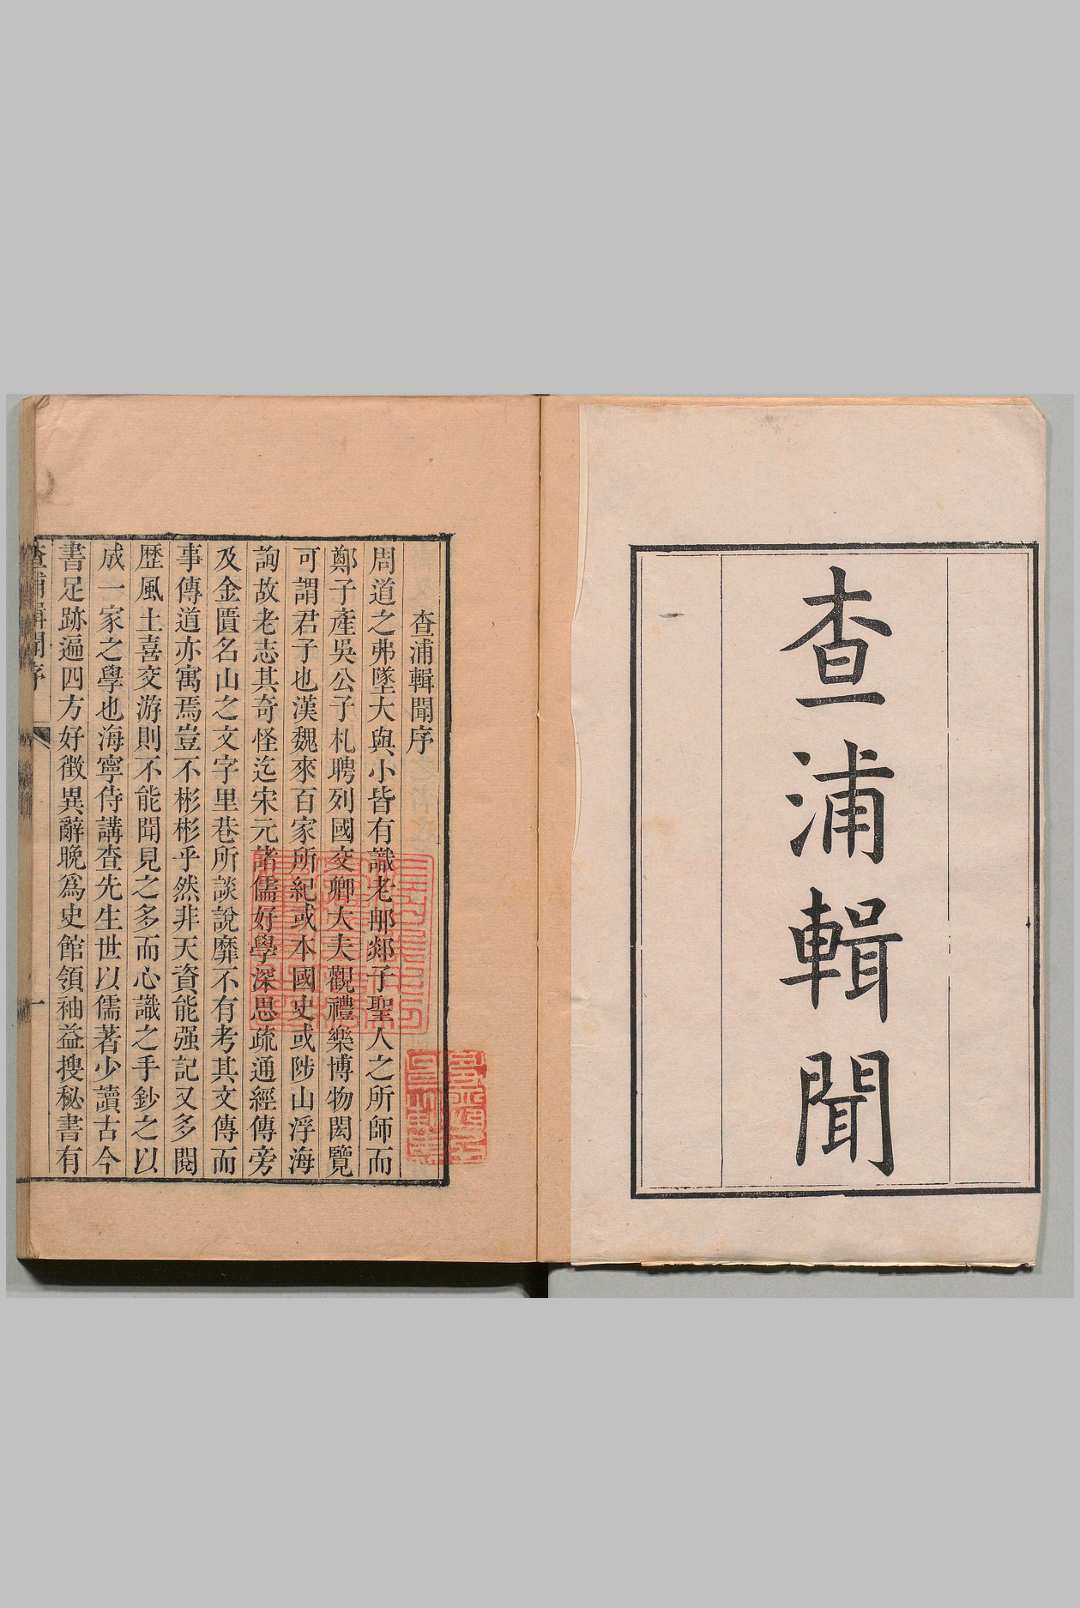 查浦輯聞
查浦輯聞序
周道之弗墜大與小皆有識老郯子聖人之所師而
鄭子產吳公子札聘列國交卿大夫觀禮樂博物閎覽
可謂君子也漢魏來百家所紀或本國史或陟山浮海
詢故老志其奇怪迄宋元諸儒好學深思疏通經傳旁
及金匱名山之文字里巷所談說靡不有考其文傳而
事傳道亦寓焉豈不彬彬乎然非天資能强記又多閱
歷風土喜交游則不能聞見之多而心識之手鈔之以
成一家之學也海寧侍講查先生世以儒著少讀古今
書足跡遍四方好徵異辭晚爲史館領袖益搜秘書有
查浦輯聞序
一